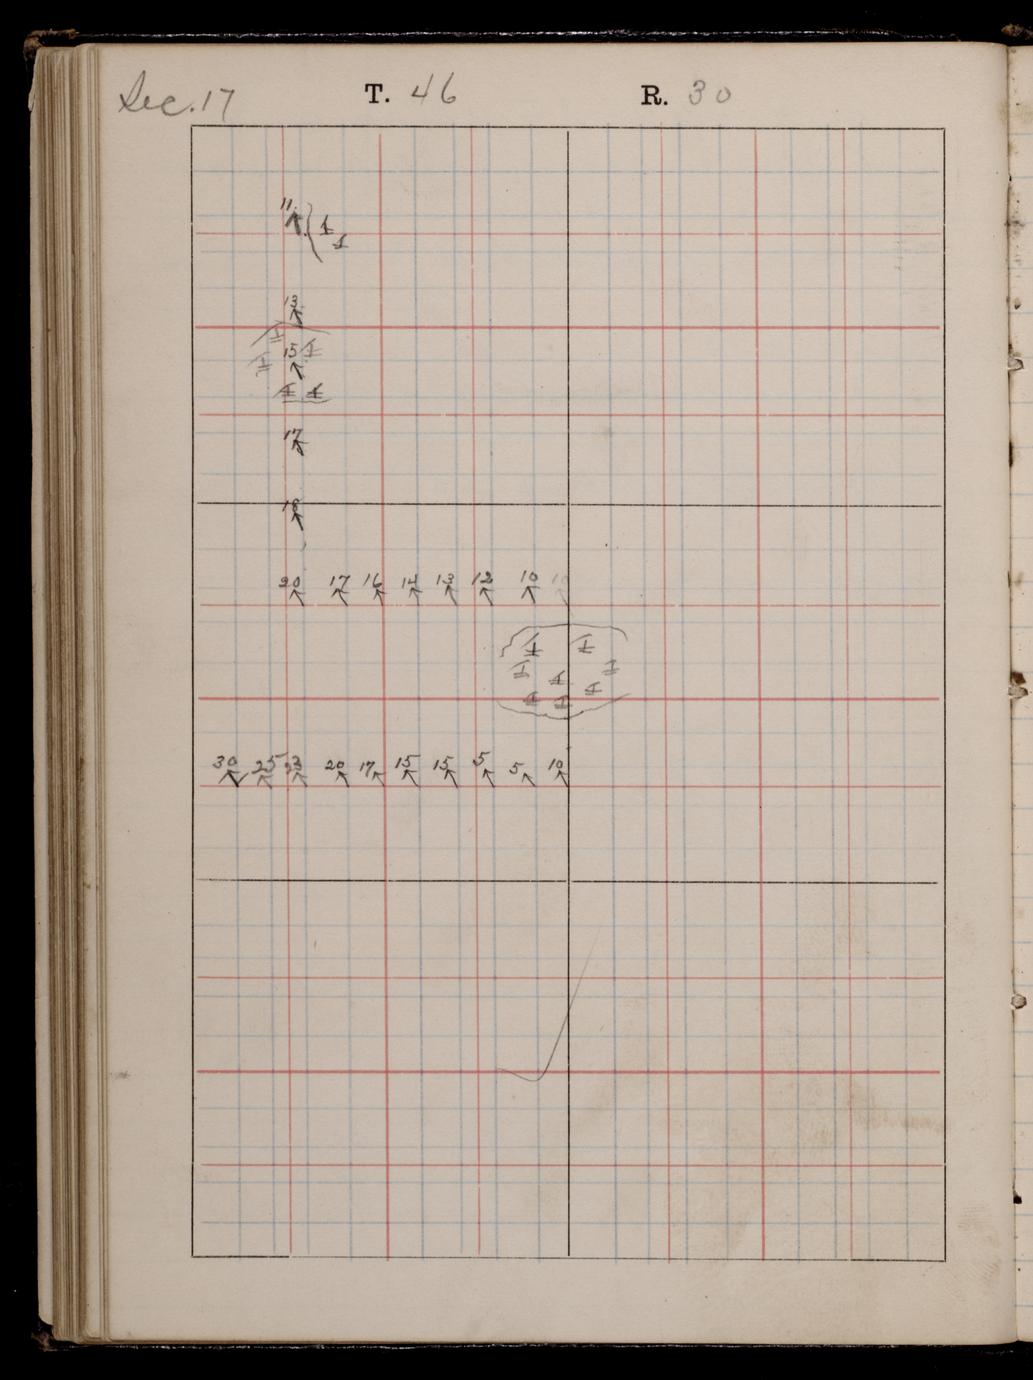 Sec. 17 T. 46 R. 30
11
13
15
17
18
20 17 16 14 13 12 10 10
30 25 23 20 17 15 15 5 5 10